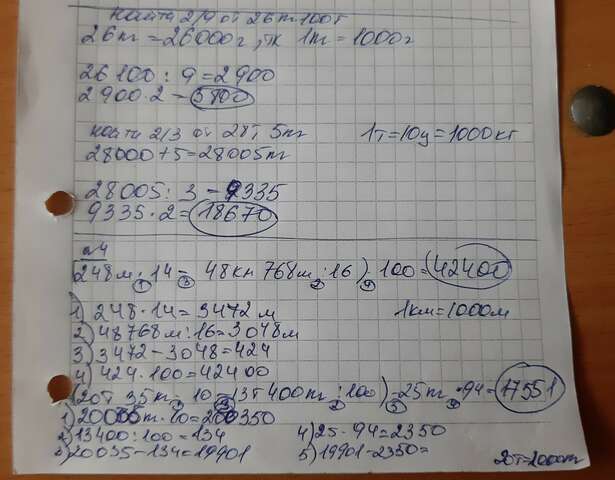 найти 2/9 от 26т 100г
26т = 26000г, тк 1т = 1000г
26 100 : 9 = 2900
2 900 · 2 - 5800
найти 2/3 от 28т, 5т 1т=10ц=1000кг
28000 + 5 = 28005т
28005 : 3 - 9335
9335 · 2 = 18670
№4
(248м · 14 - 48км 768м : 16) · 100 = 42400
1) 248 · 14 = 3472 м 1км=1000м
2) 48768м : 16 = 3048м
3) 3472 - 3048 = 424
4) 424 · 100 = 42400
(20т 35т · 10 - 13т 400т : 100) - 25т · 94 = 17551
1) 20035т · 10 = 200350
2) 13400 : 100 = 134 4) 25 · 94 = 2350
3) 20035 - 134 = 19901 5) 19901 - 2350 =